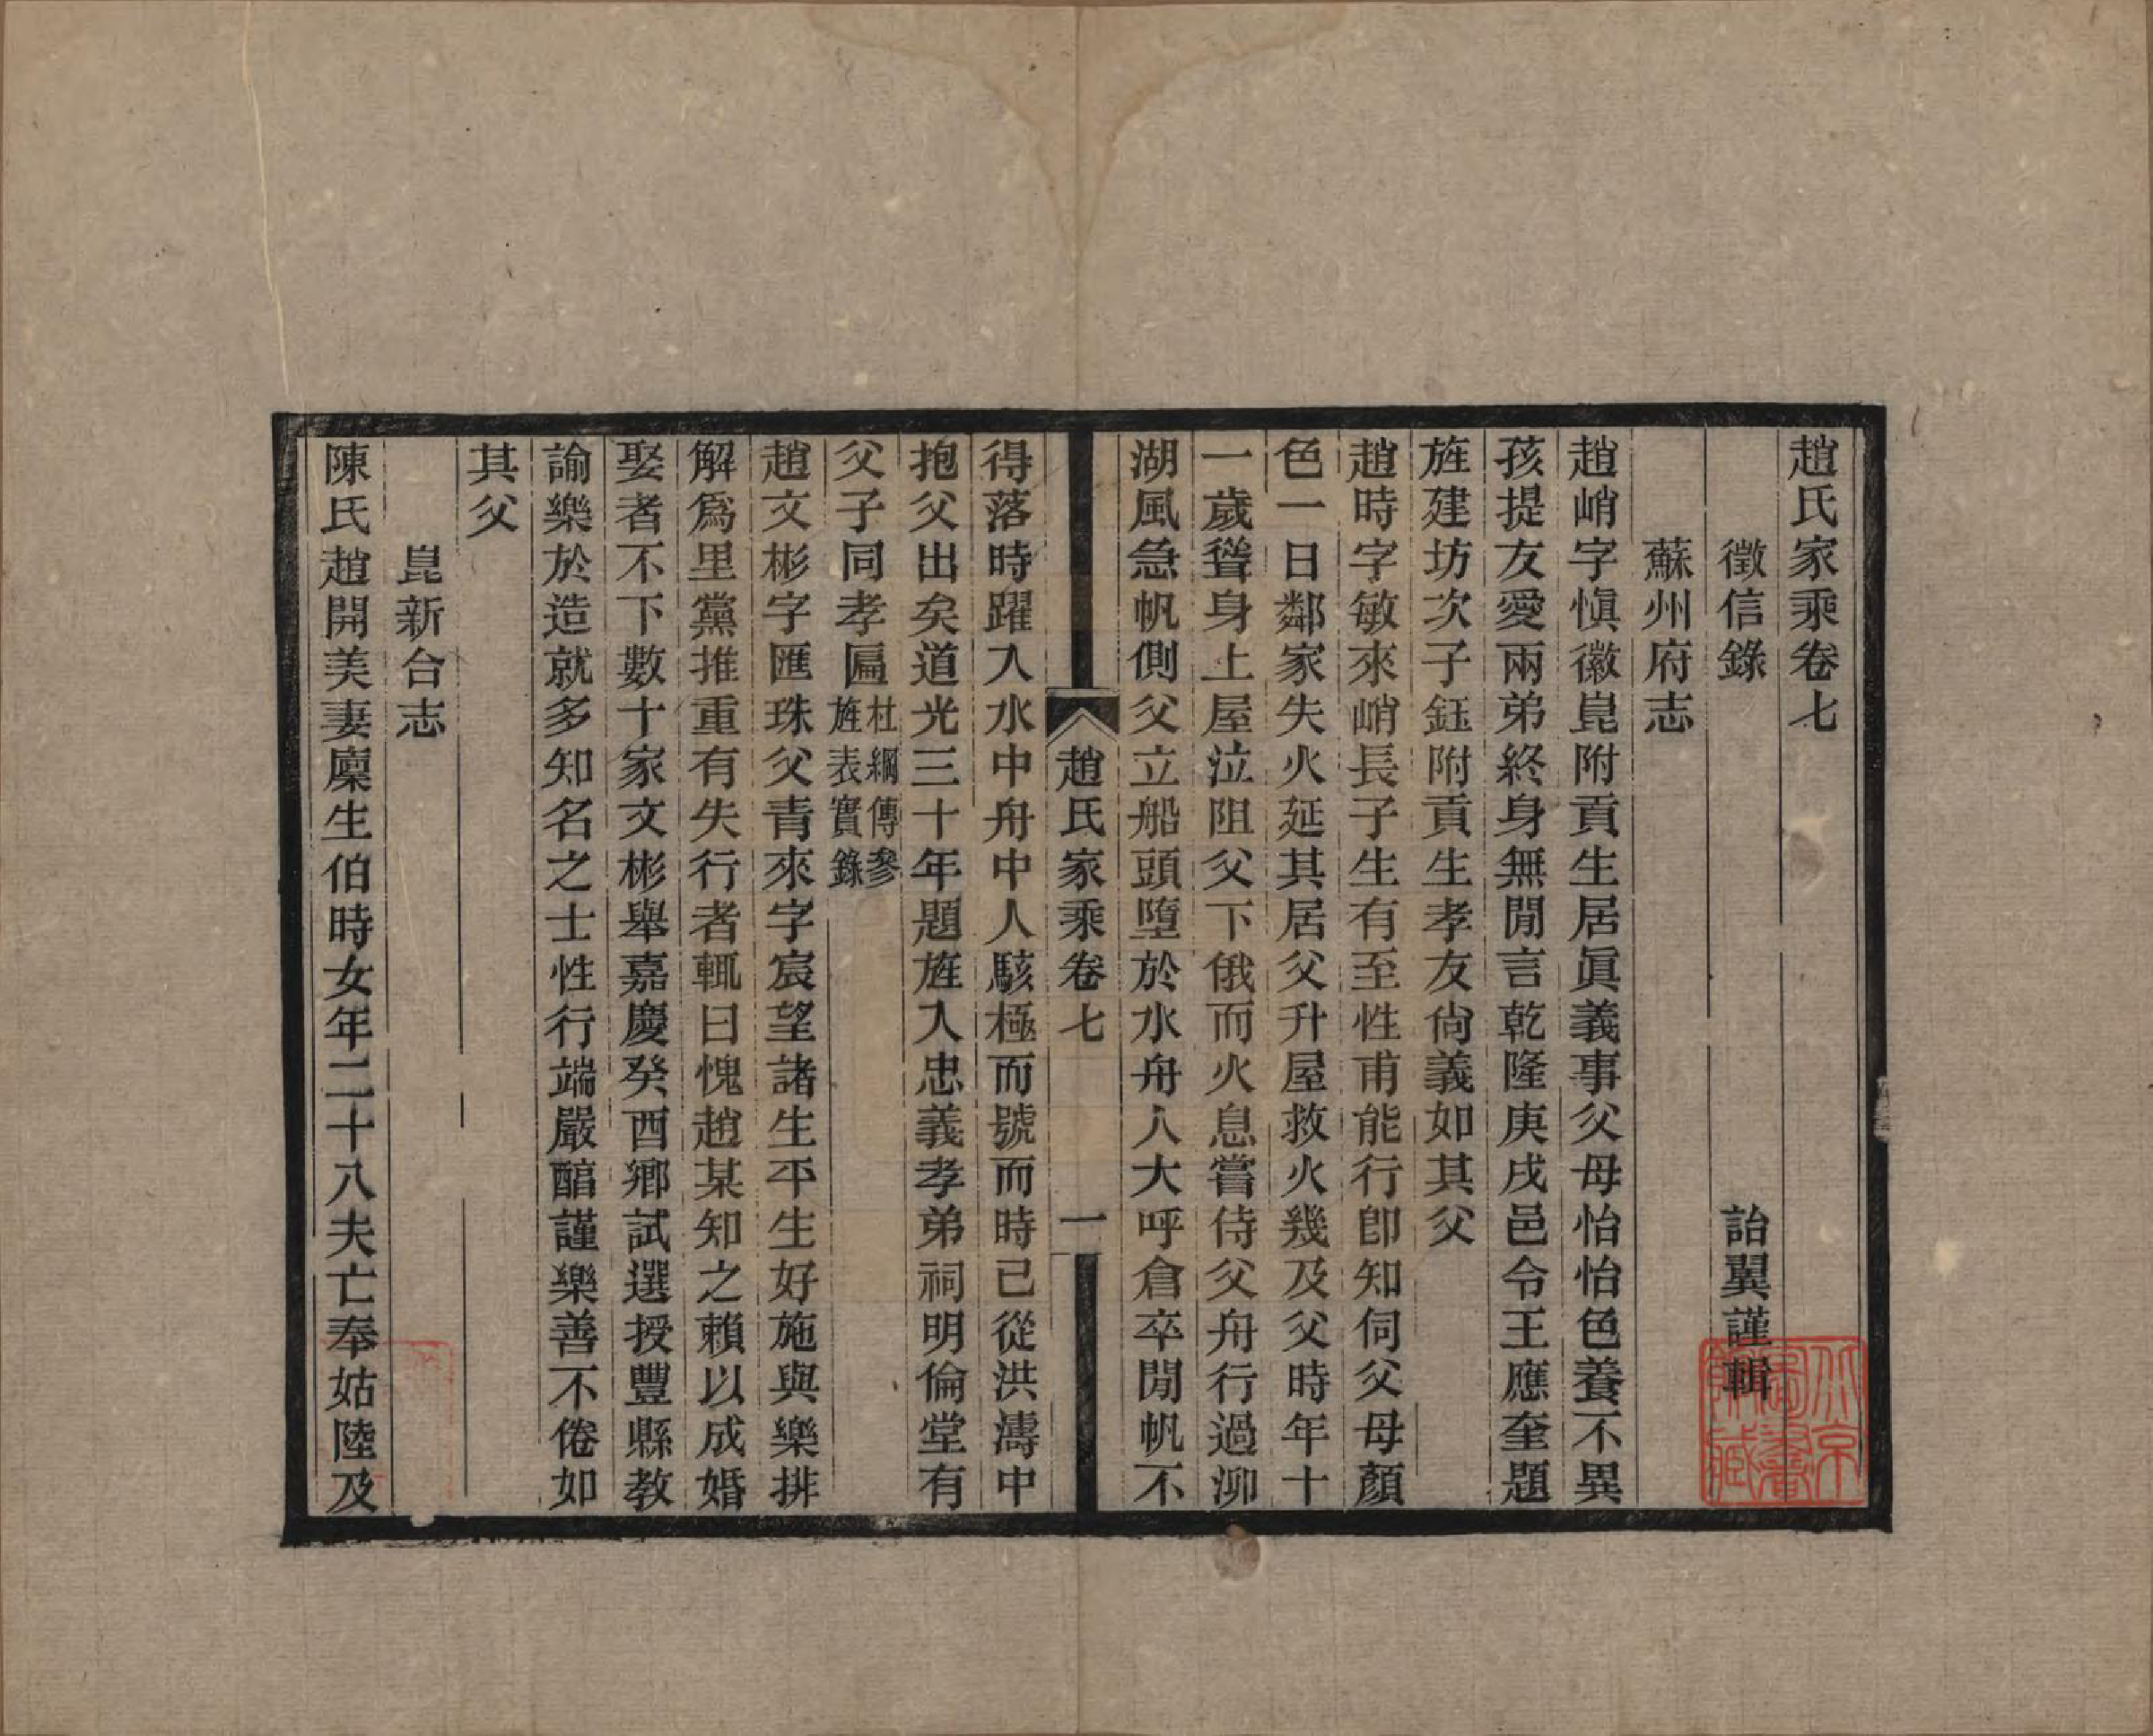 趙氏家乘卷七
徵信錄　詒翼謹輯
蘇州府志
趙峭字愼徽崑附貢生居眞義事父母怡怡色養不異
孩提友愛兩弟終身無閒言乾隆庚戌邑令王應奎題
旌建坊次子鈺附貢生孝友尙義如其父
趙時字敏來峭長子生有至性甫能行卽知伺父母顏
色一日鄰家失火延其居父升屋救火幾及父時年十
一歲聳身上屋泣阻父下俄而火息嘗侍父舟行過泖
湖風急帆側父立船頭墮於水舟人大呼倉卒閒帆不
趙氏家乘卷七　一
得落時躍入水中舟中人駭極而號而時已從洪濤中
抱父出矣道光三十年題旌入忠義孝弟祠明倫堂有
父子同孝匾杜綱傳參旌表實錄
趙文彬字匯珠父靑來字宸望諸生平生好施與樂排
解爲里黨推重有失行者輒曰愧趙某知之賴以成婚
娶者不下數十家文彬舉嘉慶癸酉鄉試選授豐縣教
諭樂於造就多知名之士性行端嚴醕謹樂善不倦如
其父
崑新合志
陳氏趙開美妻廩生伯時女年二十八夫亡奉姑陸及
北京圖書館藏